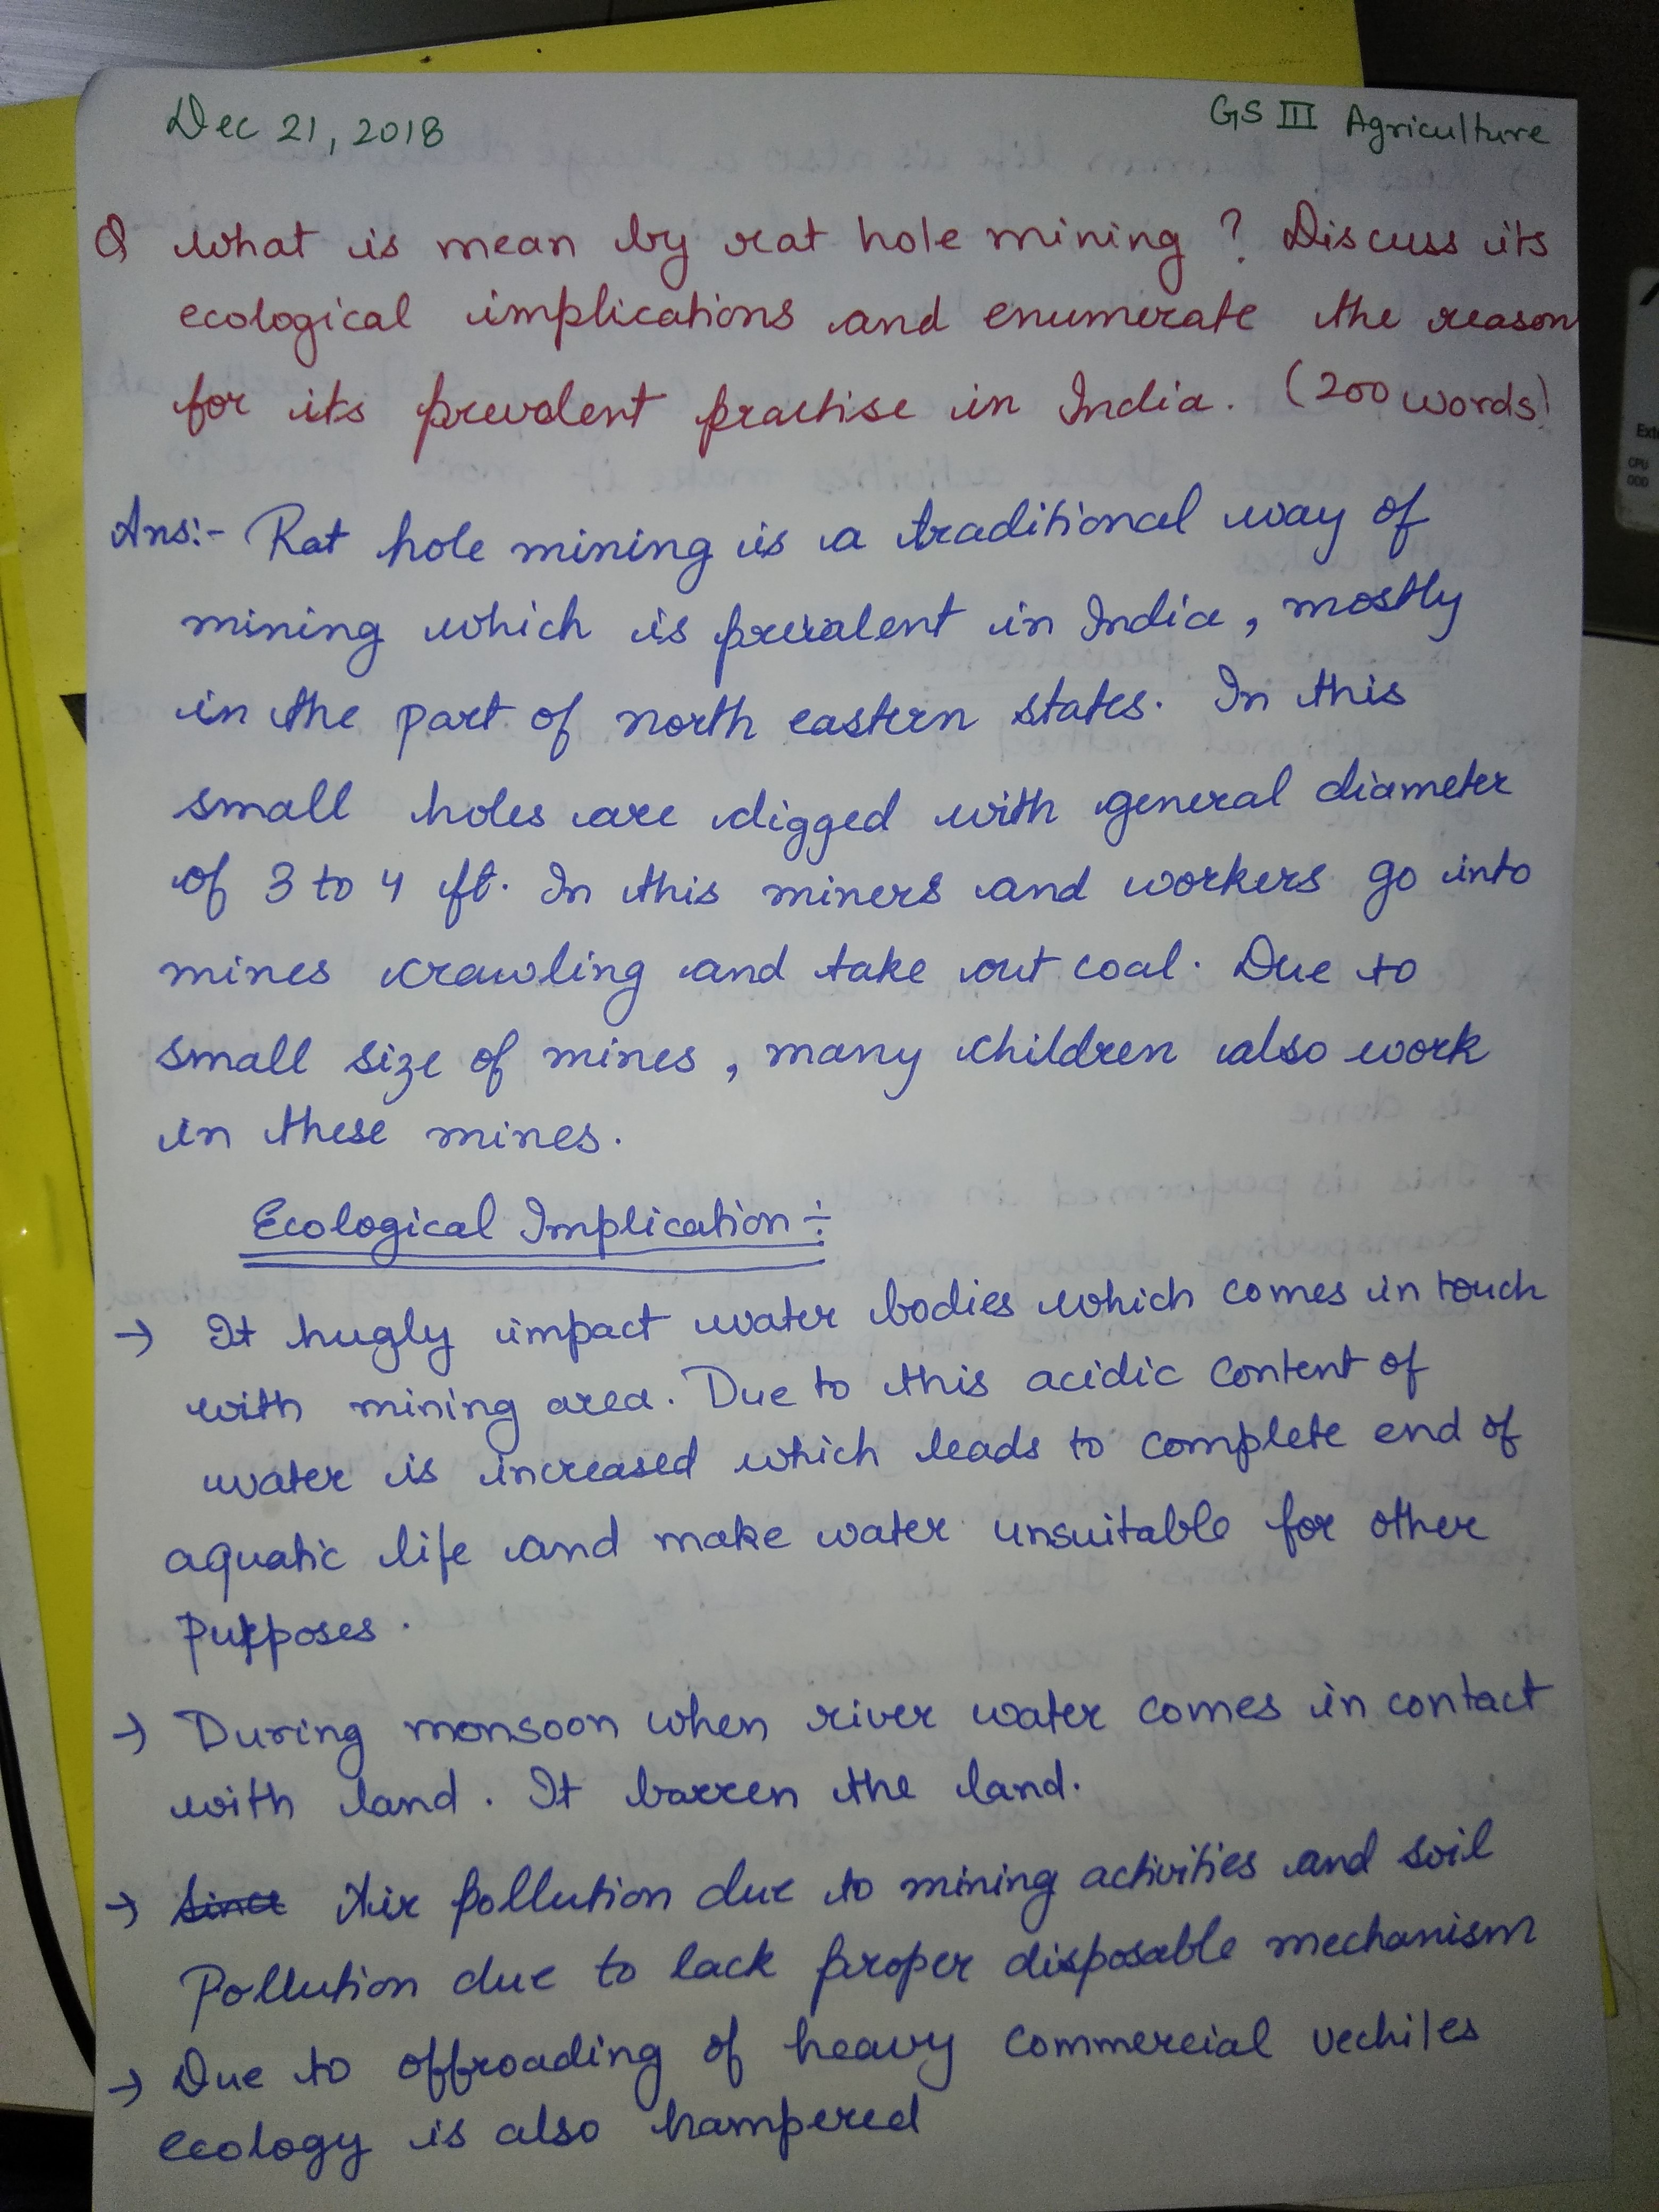 Dec 21, 2018
GS III Agriculture
Q what is mean by rat hole mining ? Discuss its
ecological implications and enumerate the reason
for its prevalent practise in India. (200 words)
Ans:- Rat hole mining is a traditional way of
mining which is prevalent in India, mostly
in the part of north eastern states. In this
small holes are digged with general diameter
of 3 to 4 ft. In this miners and workers go into
mines crawling and take out coal. Due to
small size of mines, many children also work
in these mines.
Ecological Implication :-
→ It hugly impact water bodies which comes in touch
with mining area. Due to this acidic content of
water is increased which leads to complete end of
aquatic life and make water unsuitable for other
purposes.
→ During monsoon when river water comes in contact
with land. It barren the land.
→ Since Air pollution due to mining activities and soil
Pollution due to lack proper disposable mechanism
→ Due to offroading of heavy commercial vechiles
ecology is also hampered